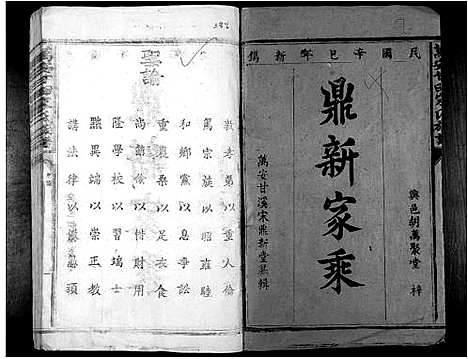 民國辛巳年新鐫
興邑胡萬聚堂梓
鼎新家乘
萬安甘溪宋鼎新堂纂輯
聖諭
敦孝弟以重人倫
篤宗族以昭雍睦
和鄉黨以息爭訟
重農桑以足衣食
尚節儉以惜財用
隆學校以端士習
黜異端以崇正教
講法律以